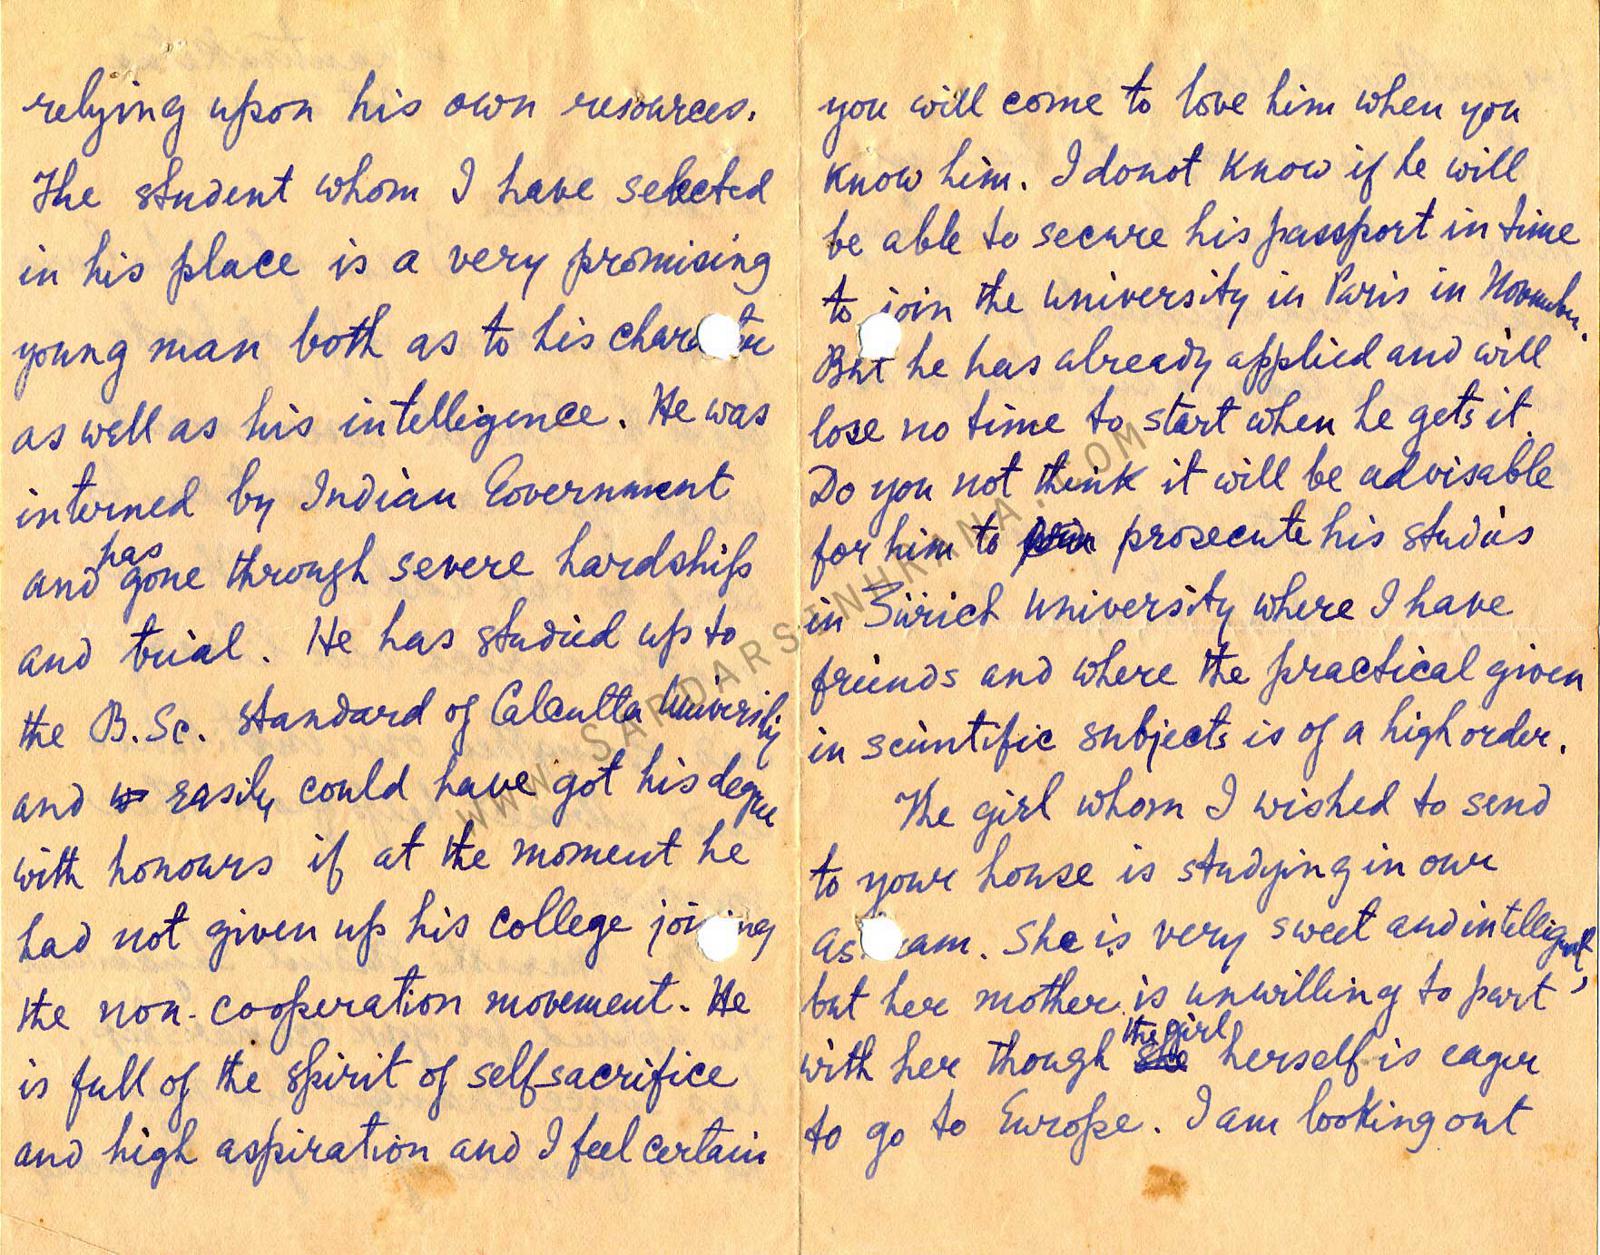 relying upon his own resources.
The student whom I have selected
in his place is a very promising
young man both as to his character
as well as his intelligence. He was
interned by Indian Government
and has gone through severe hardships
and trial. He has studied up to
the B.Sc. standard of Calcutta University
and easily could have got his degree
with honours if at the moment he
had not given up his college joining
the non-cooperation movement. He
is full of the spirit of self-sacrifice
and high aspiration and I feel certain
you will come to love him when you
know him. I donot know if he will
be able to secure his passport in time
to join the University in Paris in November.
But he has already applied and will
lose no time to start when he gets it.
Do you not think it will be advisable
for him to prosecute his studies
in Zürich University where I have
friends and where the practical given
in scientific subjects is of a high order.
The girl whom I wished to send
to your house is studying in our
asram. She is very sweet and intelligent,
but her mother is unwilling to part
with her though the girl herself is eager
to go to Europe. I am looking out
WWW.SARDARSINHRANA.COM